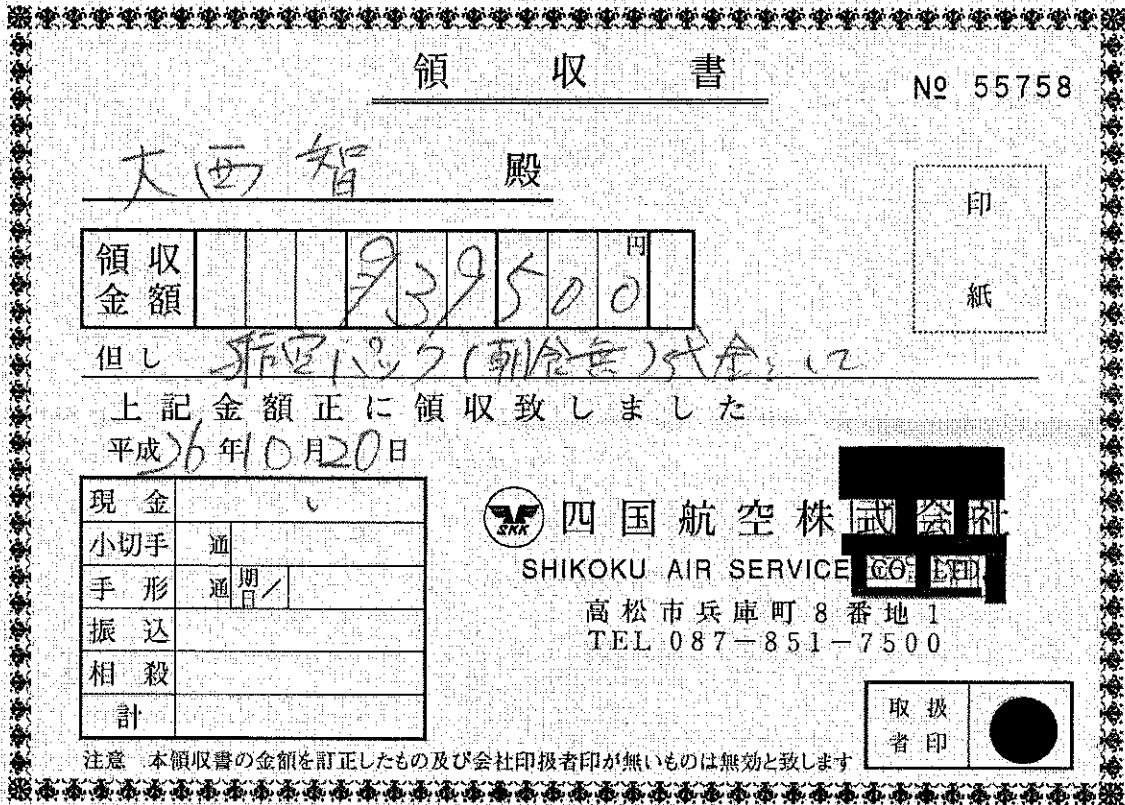 領収書
№ 55758
大西智 殿
印紙
領収金額 939500円
但し 航空パック(朝食無)代金として
上記金額正に領収致しました
平成26年10月20日
現金
小切手 通
手形 通 期日/
振込
相殺
計
SKK 四国航空株式会社
SHIKOKU AIR SERVICE CO. LTD.
高松市兵庫町8番地1
TEL 087-851-7500
取扱者印
注意 本領収書の金額を訂正したもの及び会社印扱者印が無いものは無効と致します